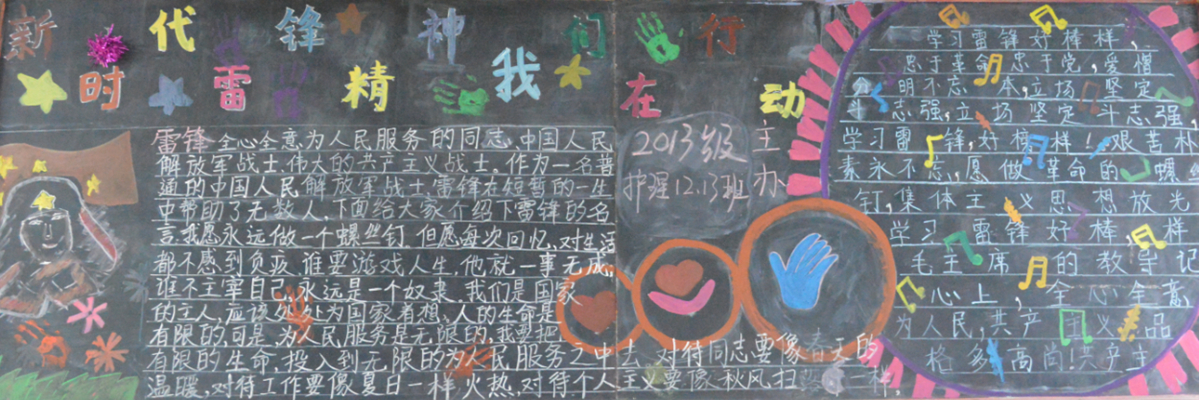 新时代雷锋精神我们在行动
雷锋全心全意为人民服务的同志,中国人民
解放军战士,伟大的共产主义战士。作为一名普
通的中国人民解放军战士雷锋在短暂的一生
中帮助了无数人,下面给大家介绍下雷锋的名
言.我愿永远做一个螺丝钉.但愿每次回忆,对生活
都不感到负疚.谁要游戏人生,他就一事无成,
谁不主宰自己,永远是一个奴隶.我们是国家
的主人,应该处处为国家着想.人的生命是
有限的,可是,为人民服务是无限的,我要把
有限的生命,投入到无限的为人民服务之中去.对待同志要像春天的
温暖,对待工作要像夏日一样火热,对待个人主义要像秋风扫
2013级
护理12.13班
主办
学习雷锋好榜样,
忠于革命忠于党,爱憎
分明不忘本,立场坚定
斗志强,立场坚定斗志强,
学习雷锋,好榜样!艰苦朴
素永不忘,愿做革命的螺丝
钉,集体主义思想放光
学习雷锋好榜样
毛主席的教导记
心上,全心全意
为人民,共产主义品
格多高尚!共产主